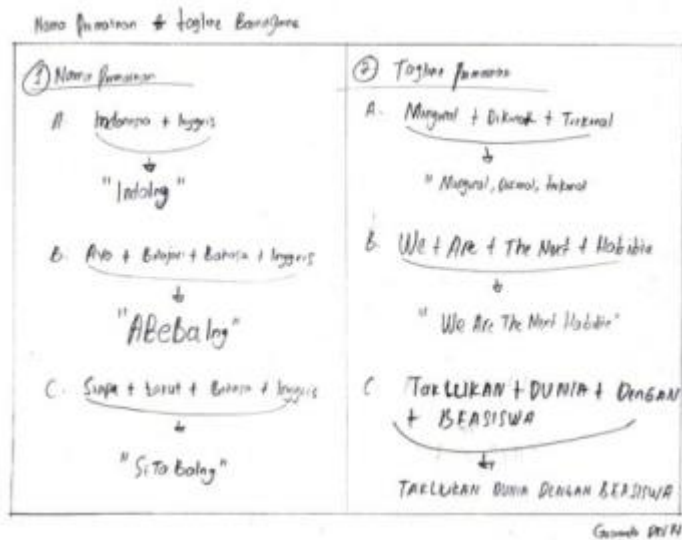 Nama Permainan & Tagline BoardGame
① Nama Permainan
A. Indonesia + Inggris
"IndoIng"
B. Ayo + Belajar + Bahasa + Inggris
"ABebaIng"
C. Siapa + Takut + Bahasa + Inggris
"SiTaBaIng"
② Tagline Permainan
A. + +
"
B. We + Are + The Next + Habibie
"We Are The Next Habibie"
C. TAKLUKAN + DUNIA + DENGAN
+ BEASISWA
TAKLUKAN DUNIA DENGAN BEASISWA